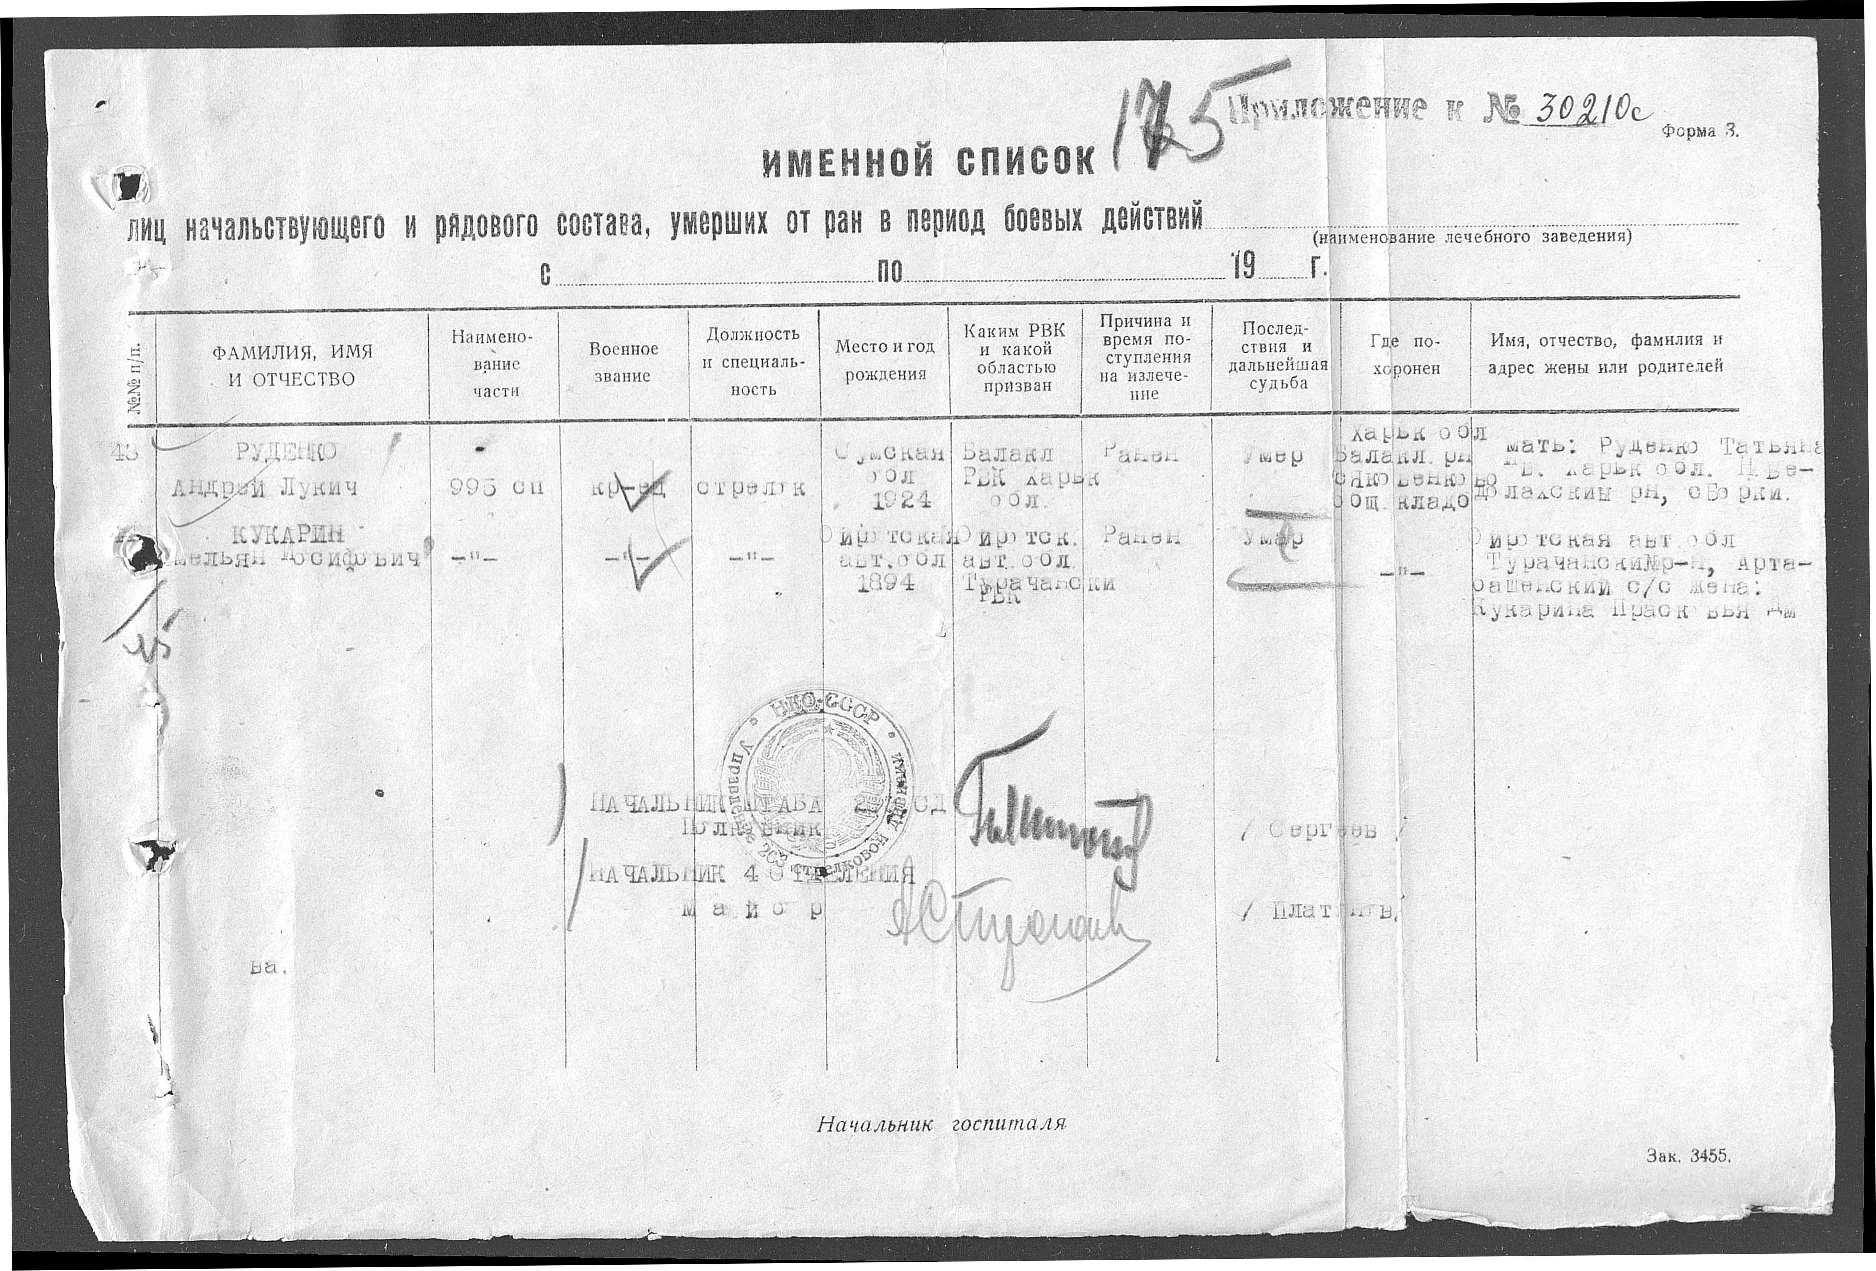 175
Приложение к № 30210с
Форма 3.
ИМЕННОЙ СПИСОК
лиц начальствующего и рядового состава, умерших от ран в период боевых действий
(наименование лечебного заведения)
с по 19 г.
№№ п/п.
ФАМИЛИЯ, ИМЯ
И ОТЧЕСТВО
Наимено-
вание
части
Военное
звание
Должность
и специаль-
ность
Место и год
рождения
Каким РВК
и какой
областью
призван
Причина и
время по-
ступления
на излече-
ние
Послед-
ствия и
дальнейшая
судьба
Где по-
хоронен
Имя, отчество, фамилия и
адрес жены или родителей
РУДЕНКО
Андрей Лукич
995 сп
кр-ец
стрелок
Сумская
обл
1924
Балакл
РВК Харьк
обл.
Ранен
Умер
Харьк обл
Балакл рн
сЯковенково
общ кладб
мать: Руденко Татьяна
Харьк обл.
рн,
КУКАРИН
Емельян Иосифович
-"-
-"-
-"-
Ойротская
авт.обл
1894
Ойротск.
авт.обл.
Турачакски
РВК
Ранен
Умер
-"-
Ойротская авт обл
Турачакский р-н, Арта-
с/с жена:
Кукарина Прасковья Дм
15
НКО СССР
Управление 263 стрелковой дивизии
НАЧАЛЬНИК ШТАБА СД
Полковник / Сергеев /
НАЧАЛЬНИК 4 ОТДЕЛЕНИЯ
майор
ва.
Начальник госпиталя
Зак. 3455.